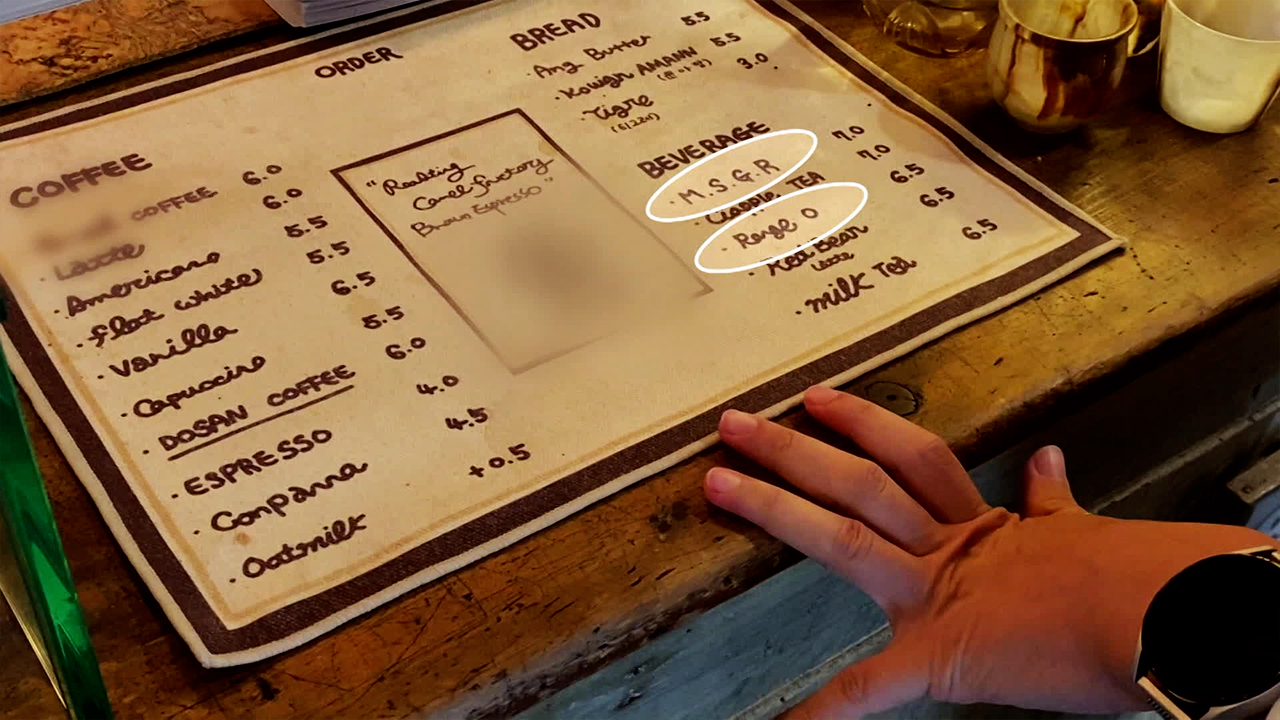 ORDER
COFFEE
COFFEE 6.0
· Latte 6.0
· Americano 5.5
· flat white 5.5
· Vanilla 6.5
· Capuccino 5.5
· DOSAN COFFEE 6.0
· ESPRESSO 4.0
· Conpanna 4.5
· Oatmilk +0.5
"Roasting
Camel factory
Brown Espresso"
BREAD
· Ang Butter 5.5
· Kouign AMANN 5.5
· Tigre 3.0
BEVERAGE
· M.S.G.R 7.0
TEA 7.0
· Range O 6.5
· Red Bean 6.5
Latte
· milk Tea 6.5